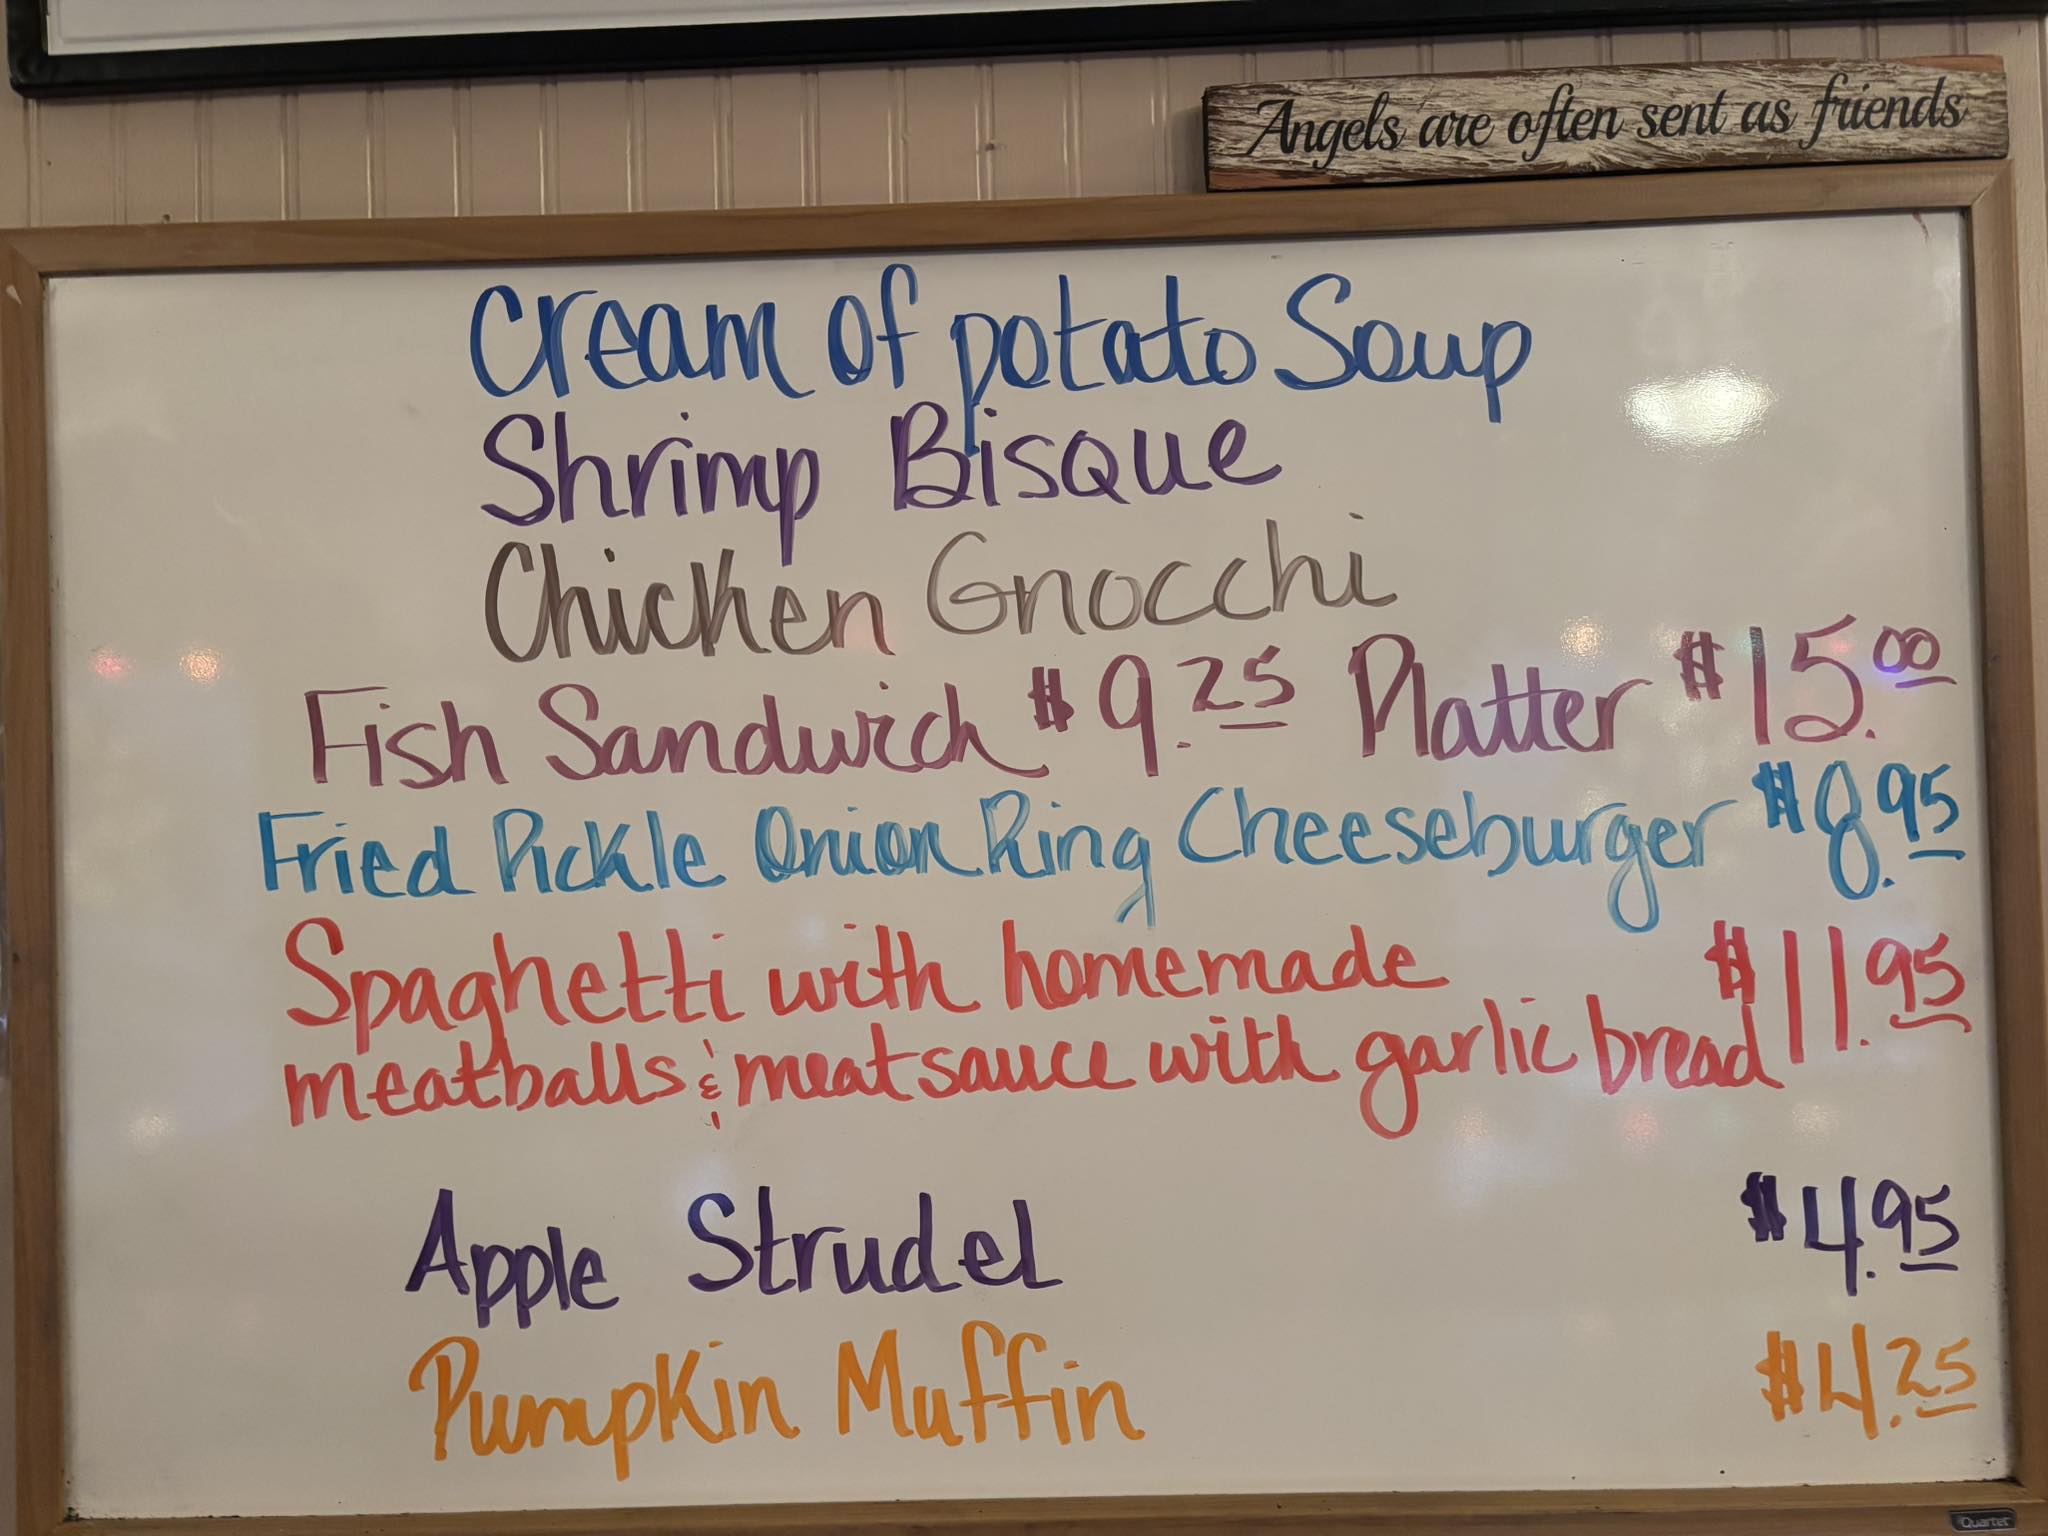 Angels are often sent as friends
Cream of potato Soup
Shrimp Bisque
Chicken Gnocchi
Fish Sandwich $9.25 Platter $15.00
Fried Pickle Onion Ring Cheeseburger $8.95
Spaghetti with homemade $11.95
meatballs & meatsauce with garlic bread
Apple Strudel $4.95
Pumpkin Muffin $4.25
Quartet